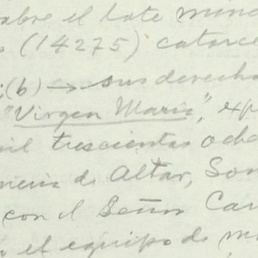 sobre el lote mine
(14275) catorce
(b) → sus derecho
"Virgen Maria", exp
mil trescientos oche
de Altar, Son
con el Señor Car
el equipo de m